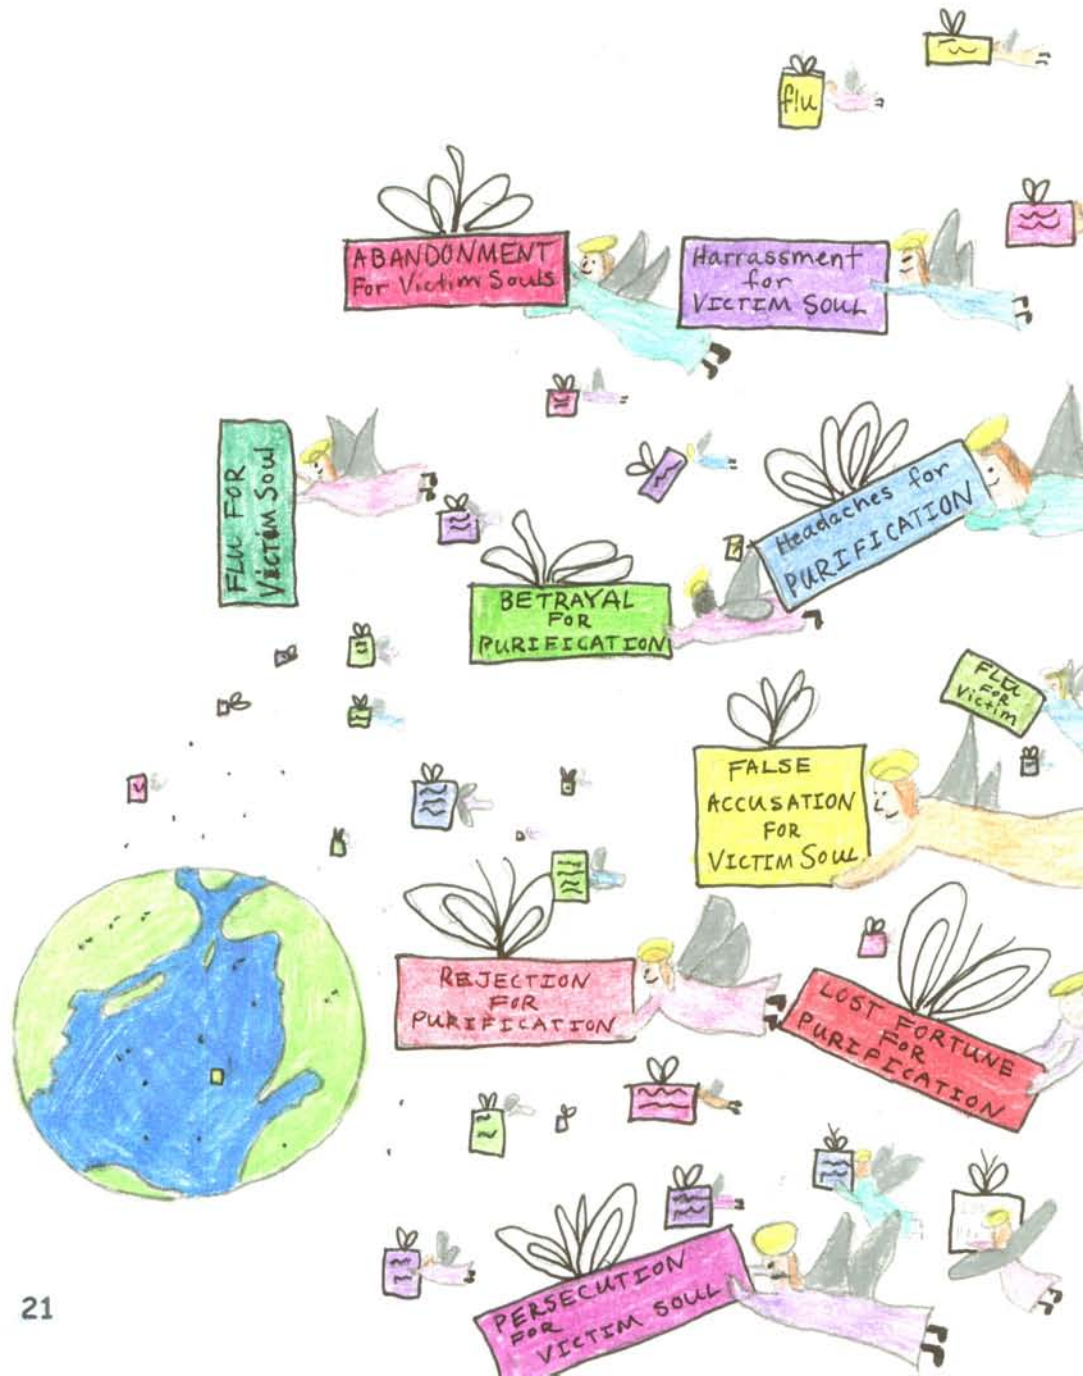 flu
ABANDONMENT
For Victim Souls
Harrassment
for
VICTIM SOUL
FLU FOR
VICTIM Soul
Headaches for
PURIFICATION
BETRAYAL
FOR
PURIFICATION
FLU
FOR
Victim
FALSE
ACCUSATION
FOR
VICTIM SOUL
REJECTION
FOR
PURIFICATION
LOST FORTUNE
FOR
PURIFICATION
PERSECUTION
FOR
VICTIM SOUL
21